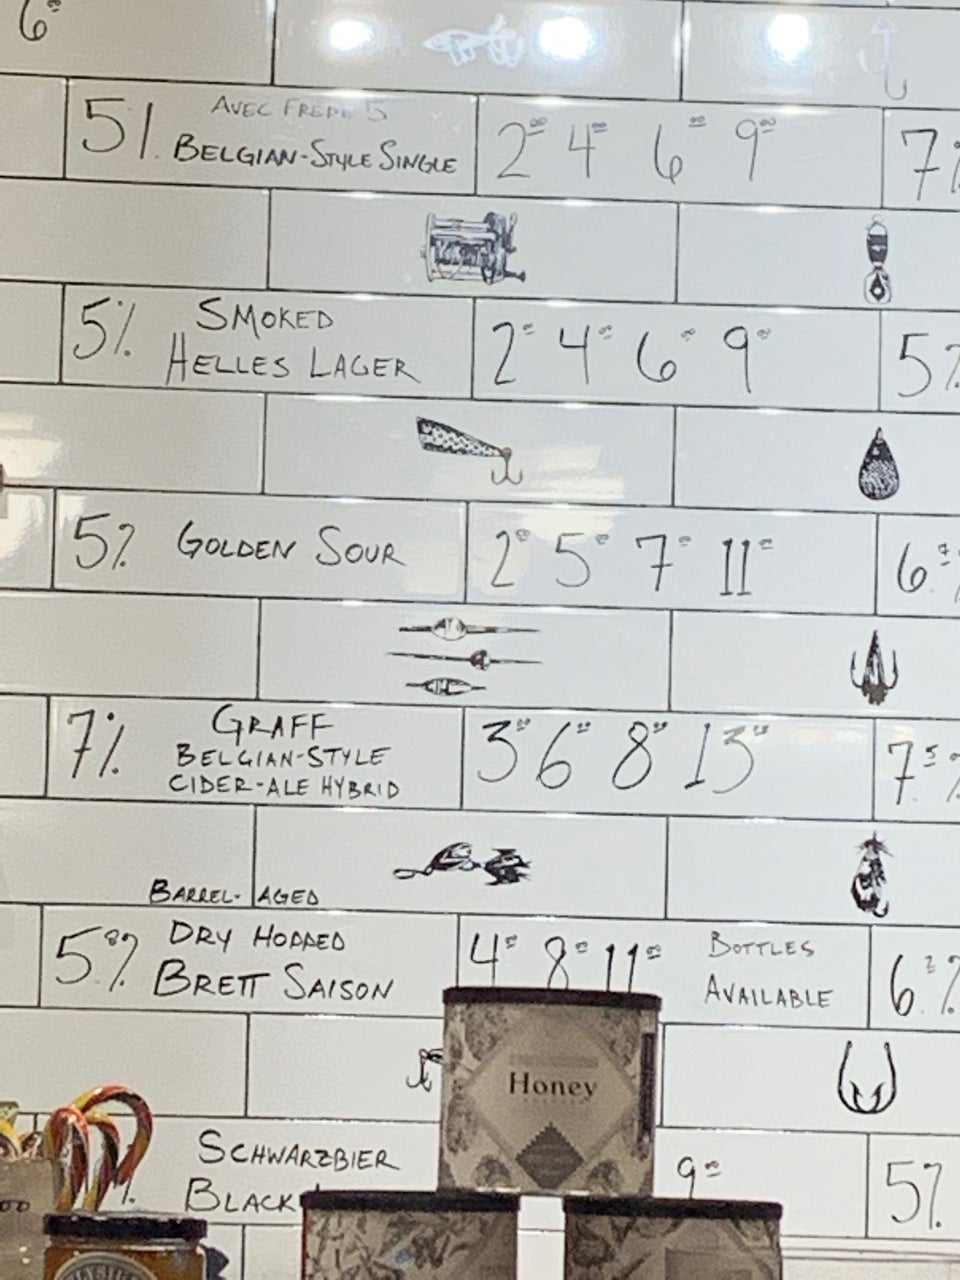 6
5%
AVEC FRERES
BELGIAN-STYLE SINGLE
2 4 6 9
7%
5%
SMOKED
HELLES LAGER
2 4 6 9
5%
5%
GOLDEN SOUR
2 5 7 11
6
7%
GRAFF
BELGIAN-STYLE
CIDER-ALE HYBRID
3 6 8 13
7.5%
BARREL-AGED
5.8%
DRY HOPPED
BRETT SAISON
4 8 11
BOTTLES
AVAILABLE
6.2%
Honey
SCHWARZBIER
BLACK
9
5%